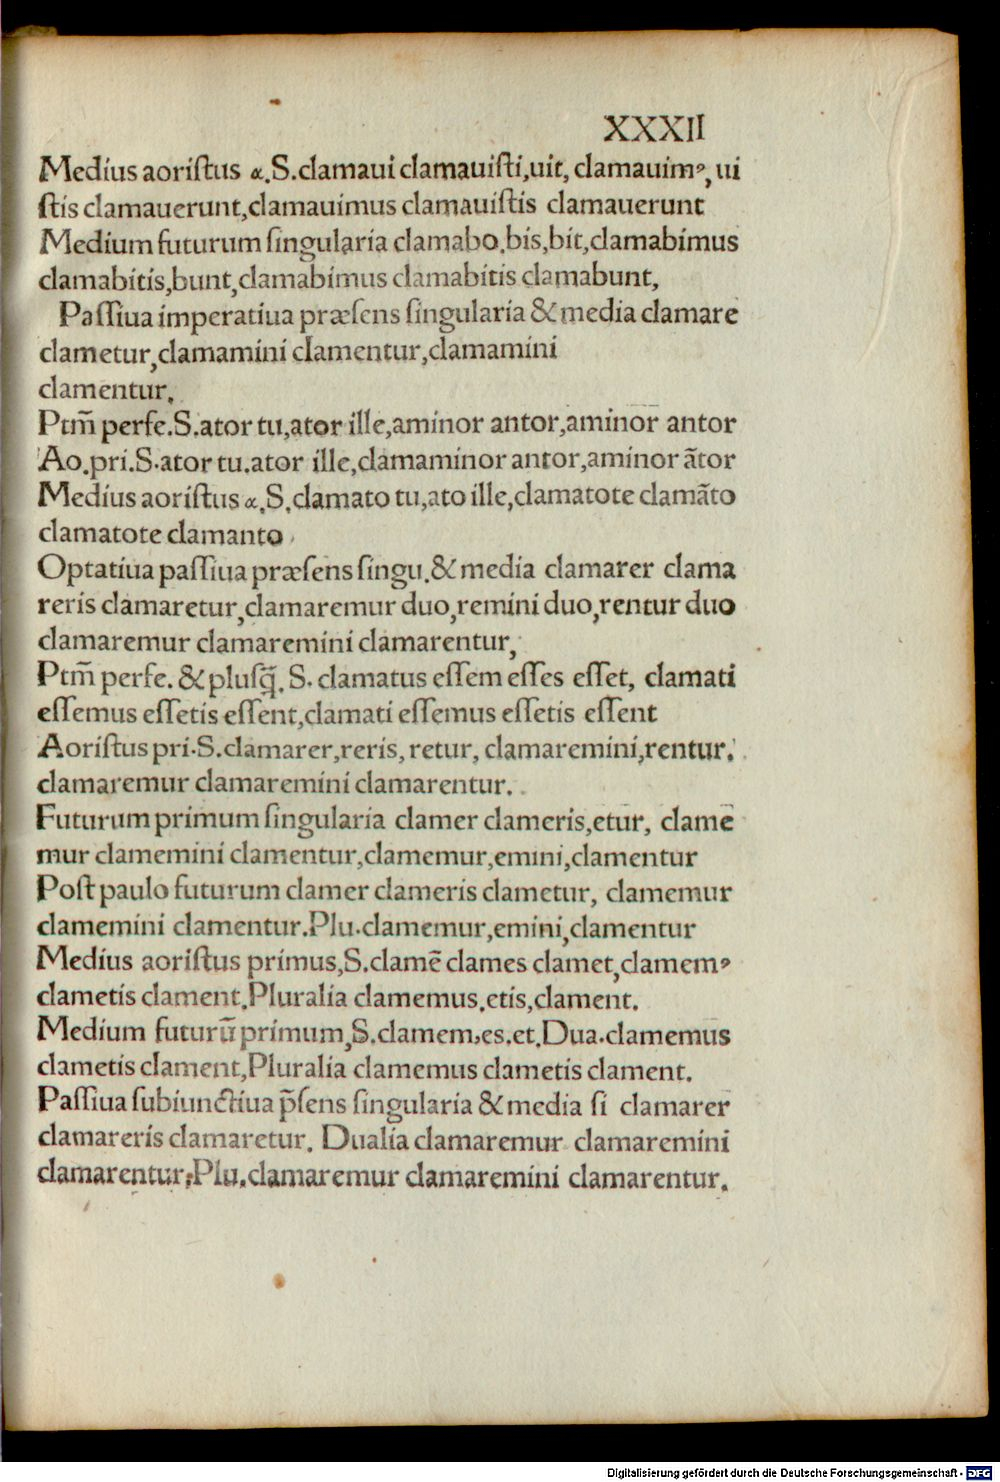 XXXII
Medius aoristus α.S.clamaui clamauisti,uit, clamauimꝰ, ui
stis clamauerunt,clamauimus clamauistis clamauerunt
Medium futurum singularia clamabo.bis,bit,clamabimus
clamabitis,bunt,clamabimus clamabitis clamabunt,
Passiua imperatiua præsens singularia & media clamare
clametur,clamamini clamentur,clamamini
clamentur.
Ptm̃ perfe.S.ator tu,ator ille,aminor antor,aminor antor
Ao.pri.S.ator tu.ator ille,clamaminor antor,aminor ãtor
Medius aoristus α.S.clamato tu,ato ille,clamatote clamãto
clamatote clamanto
Optatiua passiua præsens singu.& media clamarer clama
reris clamaretur,clamaremur duo,remini duo,rentur duo
clamaremur clamaremini clamarentur,
Ptm̃ perfe. & plusq̃. S. clamatus essem esses esset, clamati
essemus essetis essent,clamati essemus essetis essent
Aoristus pri.S.clamarer,reris, retur, clamaremini,rentur.
clamaremur clamaremini clamarentur.
Futurum primum singularia clamer clameris,etur, clame
mur clamemini clamentur,clamemur,emini,clamentur
Post paulo futurum clamer clameris clametur, clamemur
clamemini clamentur.Plu.clamemur,emini,clamentur
Medius aoristus primus,S.clamẽ clames clamet,clamemꝰ
clametis clament.Pluralia clamemus.etis,clament.
Medium futurũ primum,S.clamem,es.et.Dua.clamemus
clametis clament,Pluralia clamemus clametis clament.
Passiua subiunctiua p̃sens singularia & media si clamarer
clamareris clamaretur. Dualia clamaremur clamaremini
clamarentur:Plu.clamaremur clamaremini clamarentur.
Digitalisierung gefördert durch die Deutsche Forschungsgemeinschaft - DFG